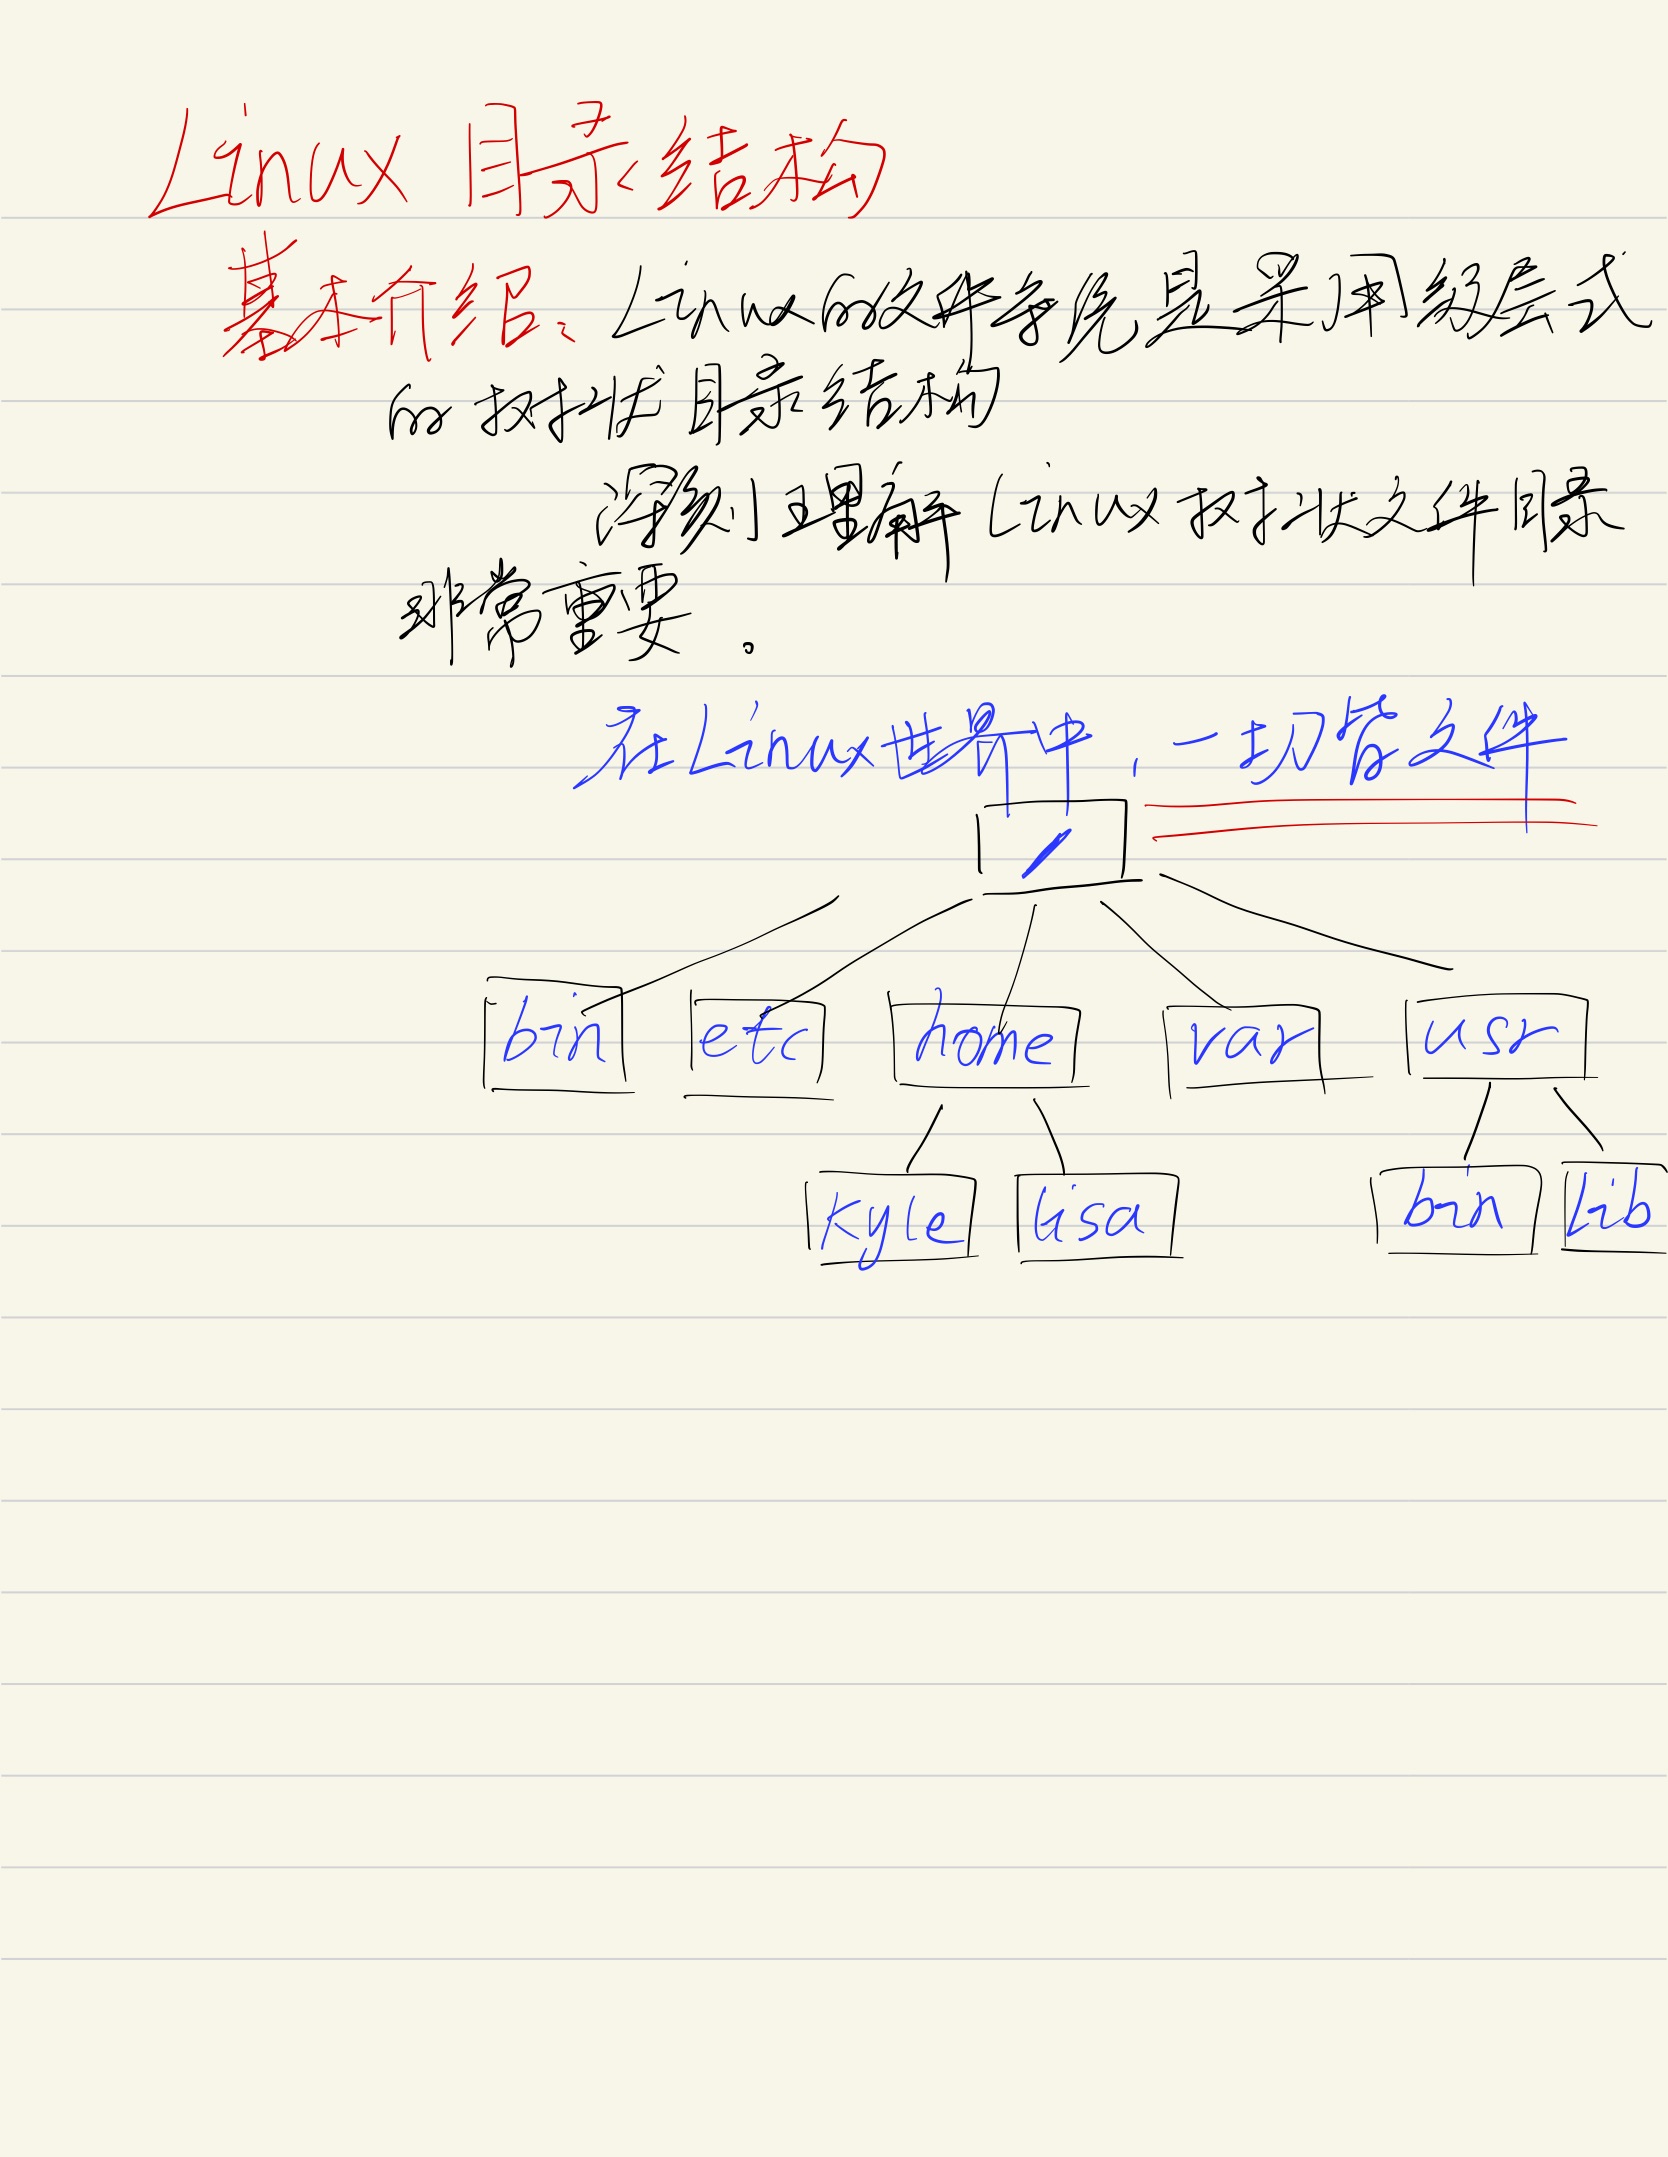 Linux 目录结构
基本介绍：Linux的文件系统是采用级层式
的树状目录结构
深刻理解Linux树状文件目录
非常重要。
在Linux世界中，一切皆文件
/
bin etc home var usr
kyle lisa bin Lib